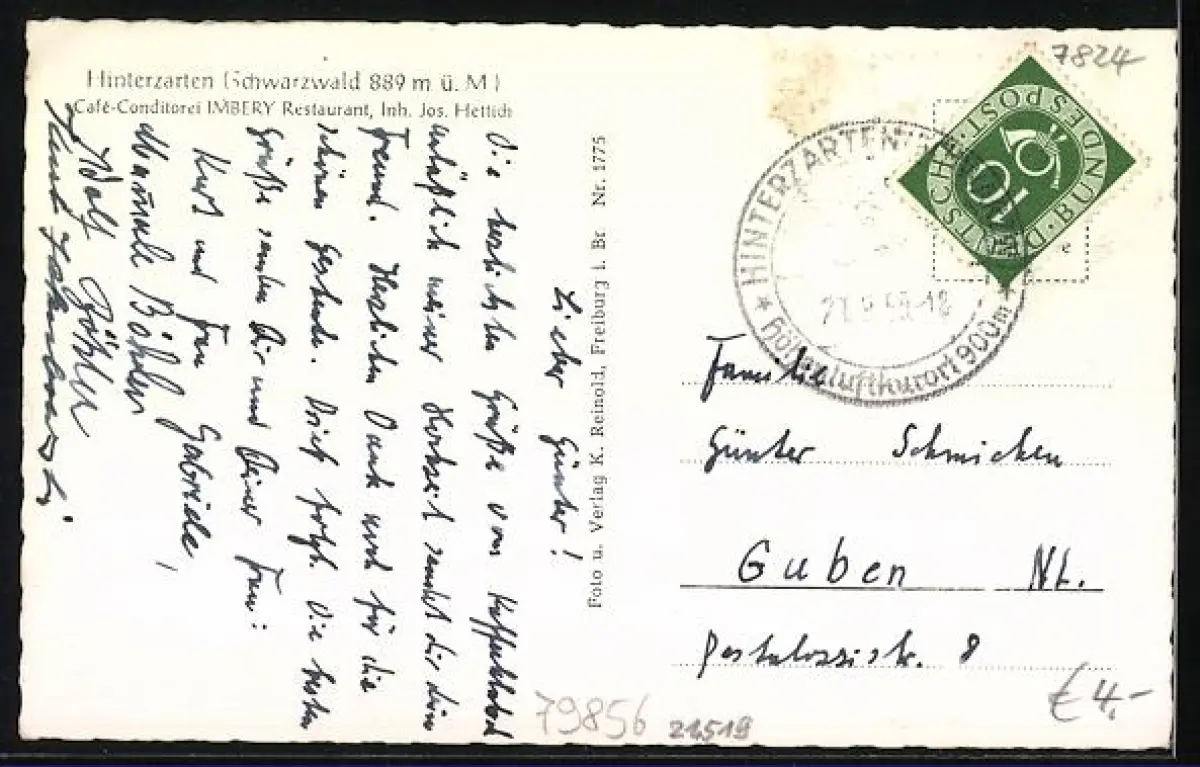 Hinterzarten (Schwarzwald 889 m ü. M.)
Café-Conditorei IMBERY Restaurant, Inh. Jos. Hettich
Lieber Günter!
Die herzlichsten Grüße vom
anläßlich meiner Hochzeit sendet dir dein
Freund. Herzlichen Dank auch für die
schönen Geschenke. Brief folgt. Die besten
Grüße senden Dir und Deiner Frau:
Kurt und Frau Gabriele,
Böhler
Wolf Böhler
Foto u. Verlag K. Reinold, Freiburg i. Br Nr. 1775
7824
DEUTSCHE BUNDESPOST
10
HINTERZARTEN
21.9.53-18
Höhenluftkurort 900m
Familie
Günter Schmicken
Guben NL.
Pestalozzistr. 8
79856
21519
€ 4,-